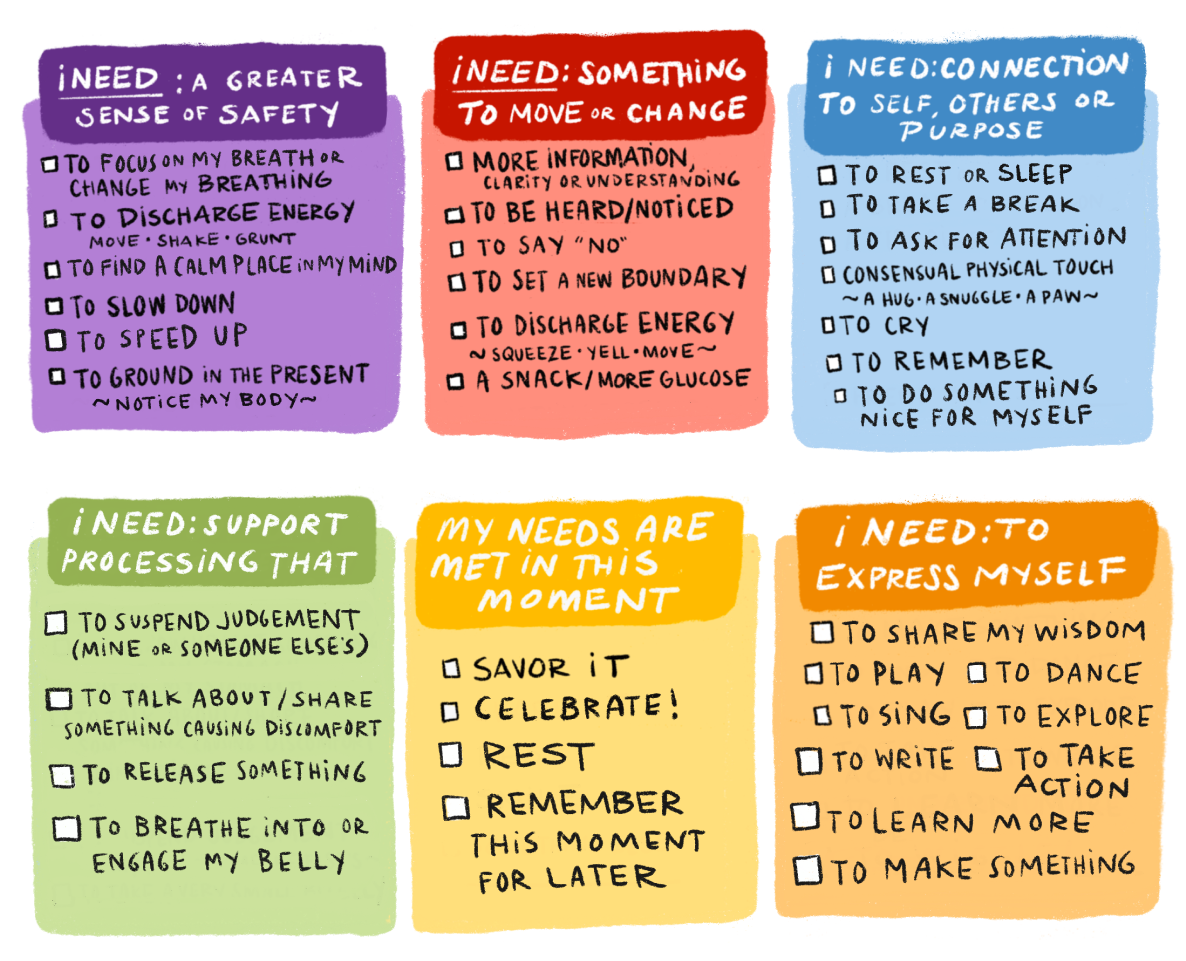 iNEED : A GREATER
SENSE OF SAFETY
TO FOCUS ON MY BREATH OR
CHANGE MY BREATHING
TO DISCHARGE ENERGY
MOVE • SHAKE • GRUNT
TO FIND A CALM PLACE IN MY MIND
TO SLOW DOWN
TO SPEED UP
TO GROUND IN THE PRESENT
~NOTICE MY BODY~
iNEED: SOMETHING
TO MOVE OR CHANGE
MORE INFORMATION,
CLARITY OR UNDERSTANDING
TO BE HEARD/NOTICED
TO SAY "NO"
TO SET A NEW BOUNDARY
TO DISCHARGE ENERGY
~ SQUEEZE • YELL • MOVE~
A SNACK/MORE GLUCOSE
i NEED: CONNECTION
TO SELF, OTHERS OR
PURPOSE
TO REST OR SLEEP
TO TAKE A BREAK
TO ASK FOR ATTENTION
CONSENSUAL PHYSICAL TOUCH
~ A HUG • A SNUGGLE • A PAW~
TO CRY
TO REMEMBER
TO DO SOMETHING
NICE FOR MYSELF
i NEED: SUPPORT
PROCESSING THAT
TO SUSPEND JUDGEMENT
(MINE OR SOMEONE ELSE'S)
TO TALK ABOUT/SHARE
SOMETHING CAUSING DISCOMFORT
TO RELEASE SOMETHING
TO BREATHE INTO OR
ENGAGE MY BELLY
MY NEEDS ARE
MET IN THIS
MOMENT
SAVOR IT
CELEBRATE!
REST
REMEMBER
THIS MOMENT
FOR LATER
i NEED: TO
EXPRESS MYSELF
TO SHARE MY WISDOM
TO PLAY TO DANCE
TO SING TO EXPLORE
TO WRITE TO TAKE
ACTION
TO LEARN MORE
TO MAKE SOMETHING